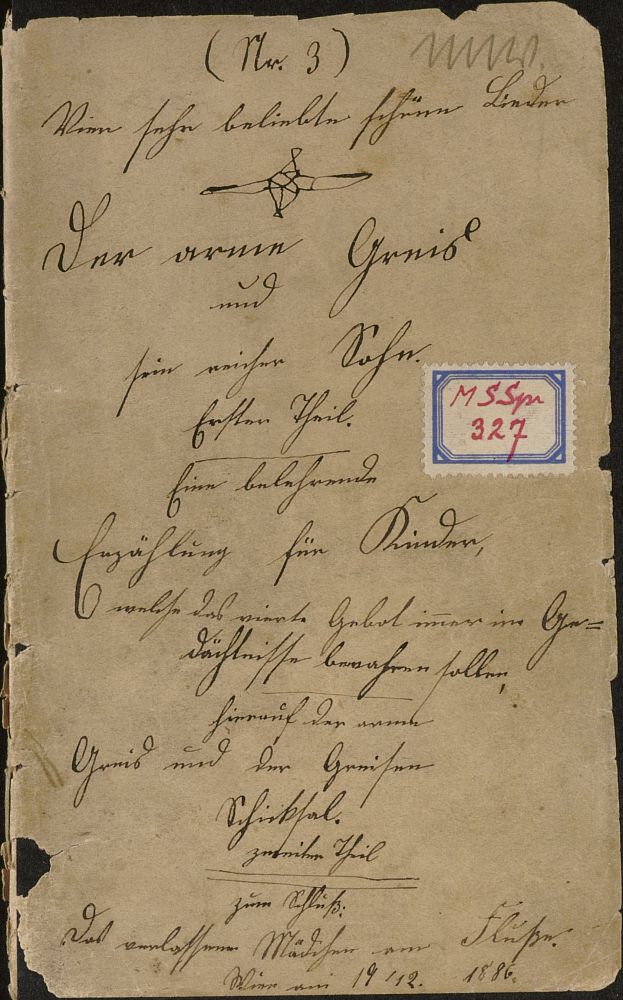 (Nr. 3)
Vier sehr beliebte schöne Lieder
Der arme Greis
und
sein reicher Sohn.
Erster Theil.
Eine belehrende
Erzählung für Kinder,
welche das vierte Gebot immer im Ge=
dächtnisse bewahren sollen,
hierauf der arme
Greis und der Greisen
Schicksal.
zweiter Theil
zum Schluß:
Das verlassene Mädchen am Fluße.
Wien am 19/12. 1886.
MSSpr
327